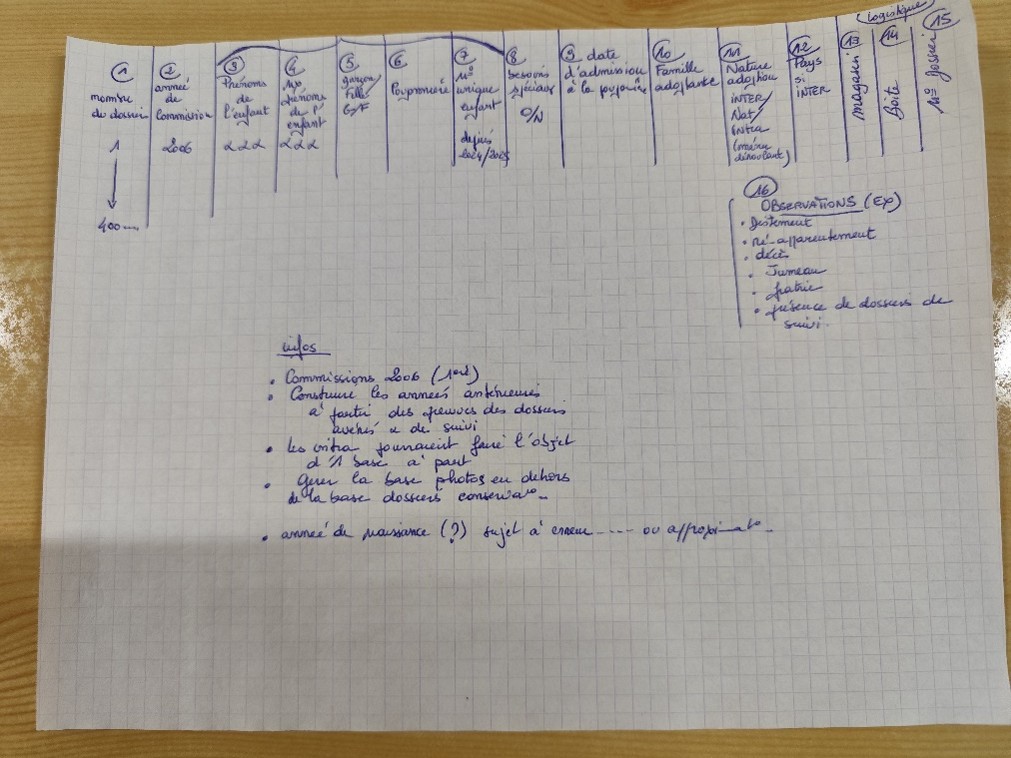 Logistique
1
nombre
de dossier
1
400
2
année
de
Commission
2006
3
Prénoms
de
l'enfant
α α α
4
prénoms
de l'
enfant
α α α
5
garçon/
Fille
G/F
6
Pouponnière
7
N°
unique
enfant
depuis
2024/2025
8
besoins
spéciaux
O/N
9 date
d'admission
à la
10
Famille
adoptante
11
Nature
adoption
INTER/
Nat/
intra
(menu
déroulant)
12
Pays
si
INTER
13
magasin
14
Boîte
15
N° dossier
16
OBSERVATIONS (Ex)
• désistement
• ré-apparentement
• décès
• Jumeau
• fratrie
• présence de dossiers de
suivi.
infos
• Commissions 2006 (1ère)
• Construire les années antérieures
à partir des preuves des dossiers
avérés & de suivi
• les intra pourraient faire l'objet
d'1 base à part
• Gérer la base photos en dehors
de la base dossiers
• année de naissance (?) sujet à erreur ---- ou